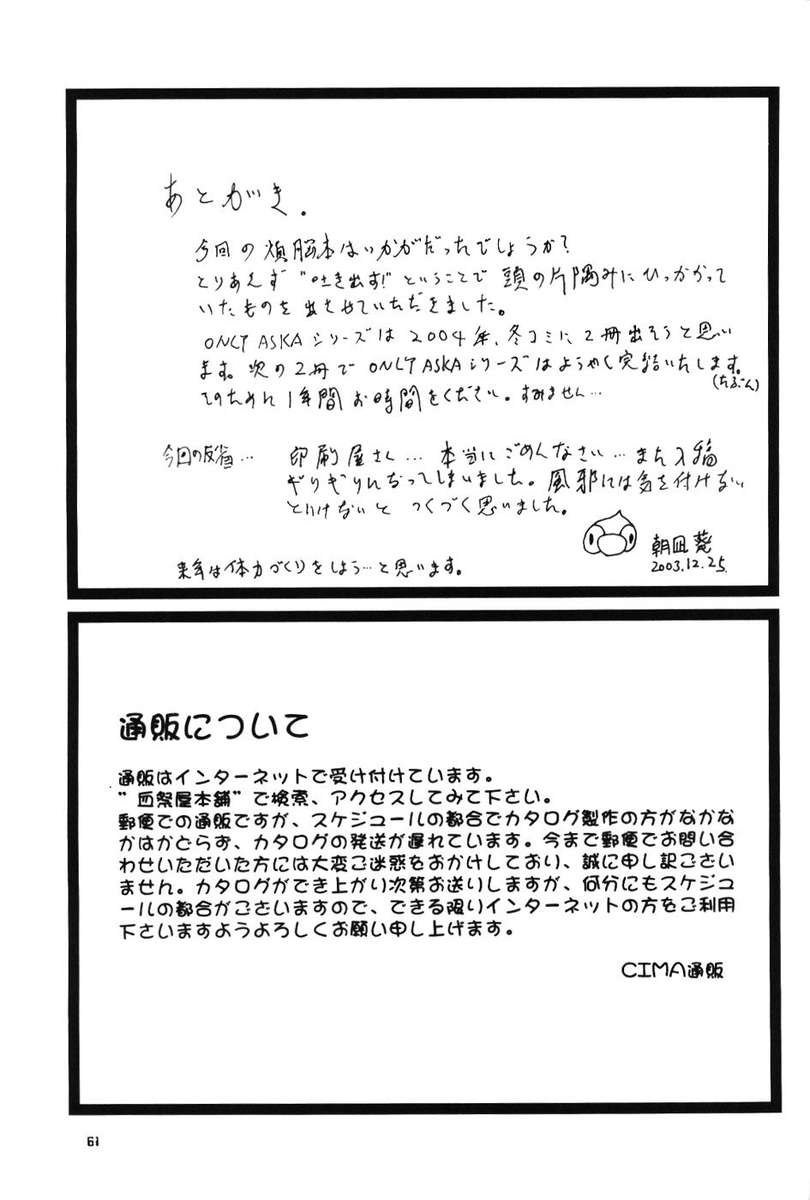 あとがき.
今回の煩脳本はいかがだったでしょうか?
とりあえず"吐き出す!"ということで頭の片隅みにひっかかって
いたものを出させていただきました。
ONLY ASKAシリーズは2004年、冬コミに2冊出そうと思い
ます。次の2冊でONLY ASKAシリーズはようやく完結いたします。
(たぶん)
そのために1年間お時間をください。すみません…
今回の反省… 印刷屋さん…本当にごめんなさい…また入稿
ギリギリになってしまいました。風邪には気を付けない
といけないと つくづく思いました。
来年は体力づくりをしよう…と思います。
朝凪 葵
2003.12.25
通販について
通販はインターネットで受け付けています。
"血祭屋本舗"で検索、アクセスしてみて下さい。
郵便での通販ですが、スケジュールの都合でカタログ製作の方がなかな
かはかどらず、カタログの発送が遅れています。今まで郵便でお問い合
わせいただいた方には大変ご迷惑をおかけしており、誠に申し訳ござい
ません。カタログができ上がり次第お送りしますが、何分にもスケジュ
ールの都合がございますので、できる限りインターネットの方をご利用
下さいますようよろしくお願い申し上げます。
CIMA通販
61